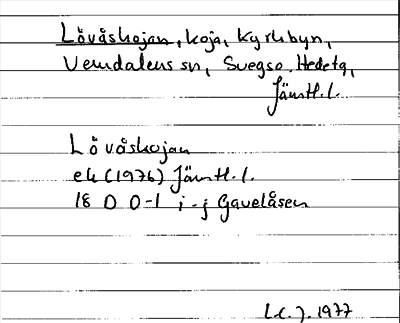 Lövåskojan, koja, Kyrkbyn,
Vemdalens sn, Svegs o. Hede tg,
Jämtl. l.
Lövåskojan
ek (1976) Jämtl. l.
18 D 0-1 i-j Gavelåsen
L.E.J. 1977